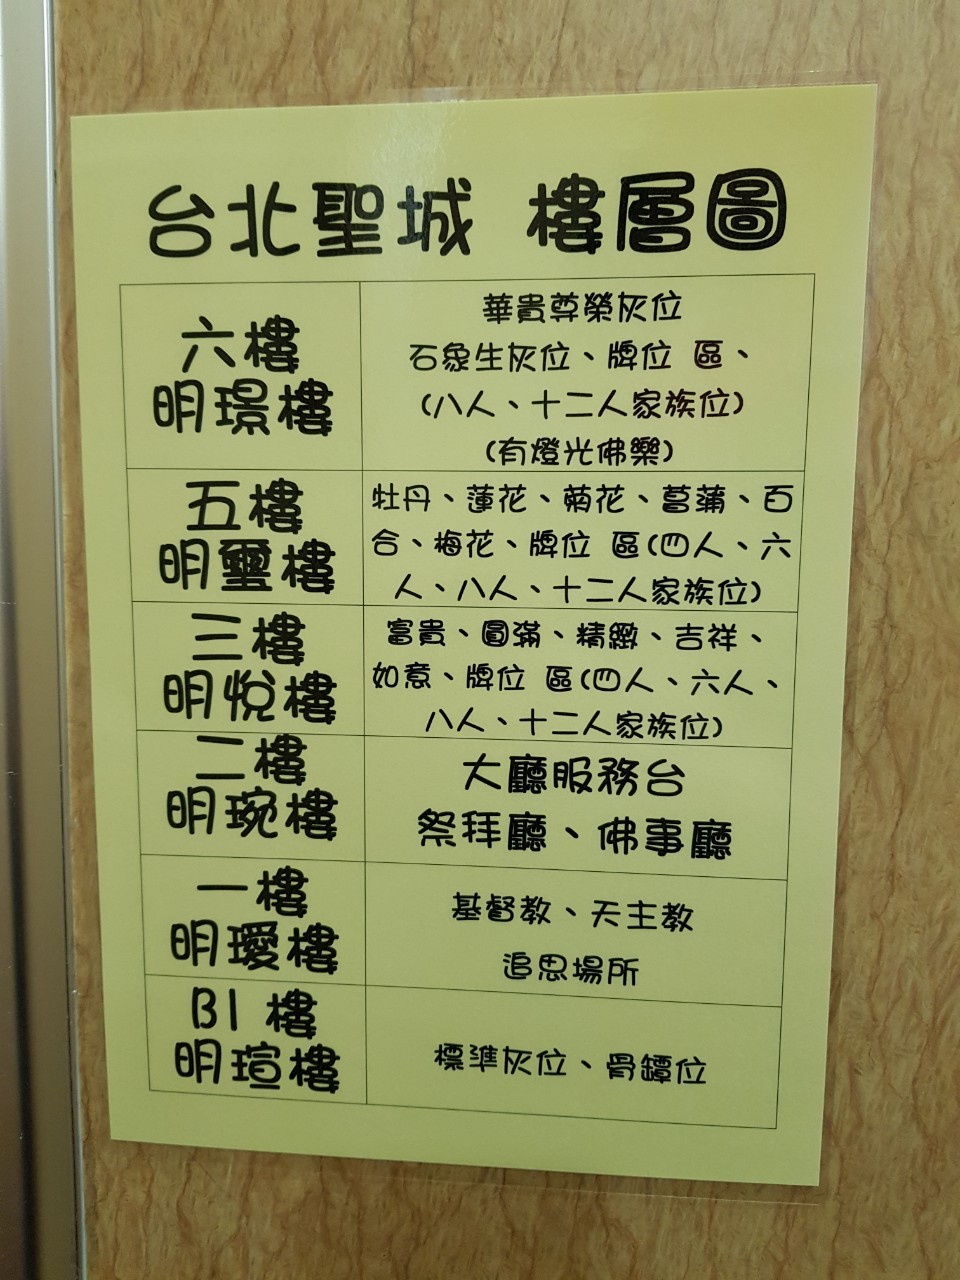 台北聖城 樓層圖
六樓
明璟樓
華貴尊榮灰位
石象生灰位、牌位 區、
(八人、十二人家族位)
(有燈光佛樂)
五樓
明璽樓
牡丹、蓮花、菊花、菖蒲、百
合、梅花、牌位 區(四人、六
人、八人、十二人家族位)
三樓
明悅樓
富貴、圓滿、精緻、吉祥、
如意、牌位 區(四人、六人、
八人、十二人家族位)
二樓
明琬樓
大廳服務台
祭拜廳、佛事廳
一樓
明璦樓
基督教、天主教
追思場所
B1 樓
明瑄樓
標準灰位、骨罈位